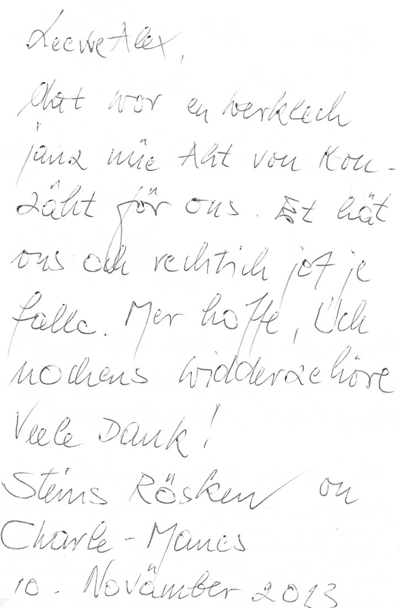 Leewe Alex,
dat wor en werklech
janz nüe Aht von Kon-
zäht för ons. Et hät
ons och rechtich jot je
falle. Mer hoffe, Üch
nochens widderzehöre
Veele Dank!
Steins Rösken on
Charle-Manes
10. Novämber 2013